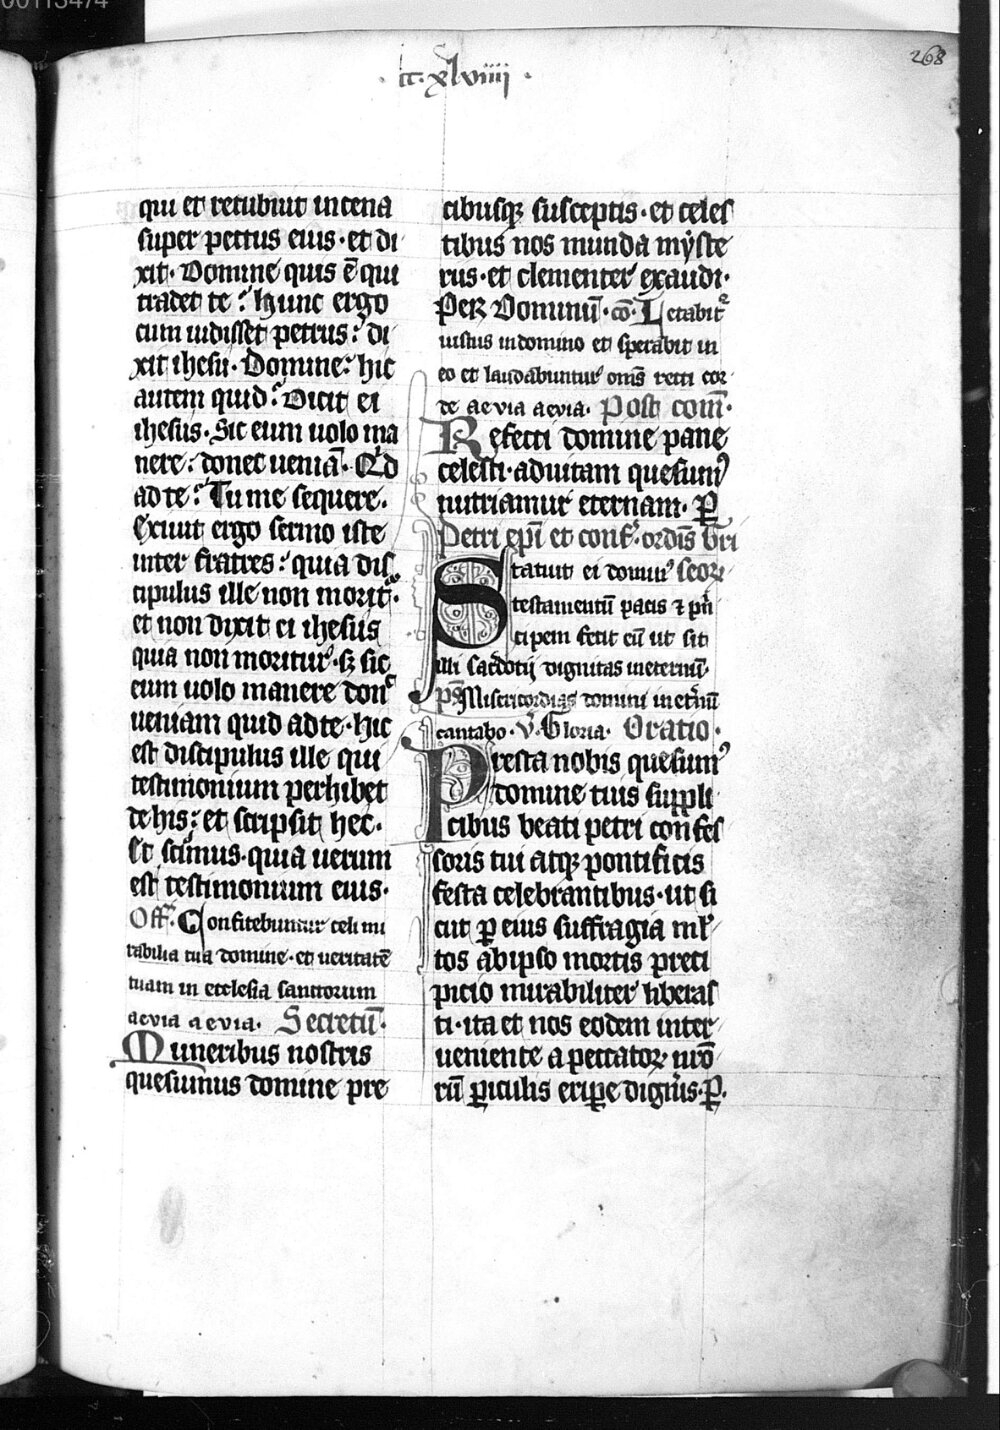 00113474
268
cc·xlviiii·
qui et recubuit in cena
super pectus eius· et di
xit· Domine quis ē qui
tradet te? hunc ergo
cum uidisset petrus? di
xit ihesu· Domine? hic
autem quid? Dicit ei
ihesus· Sic eum uolo ma
nere? donec ueniā· Qd
ad te? Tu me sequere·
Exiuit ergo sermo iste
inter fratres? quia dis
cipulus ille non morit᷑·
et non dixit ei ihesus
quia non moritur· sꝫ sic
eum uolo manere donc
ueniam quid ad te· hic
est discipulus ille qui
testimonium perhibet
de his? et scripsit hec·
Et scimus· quia uerum
est testimonium eius·
Off· Confitebuntur celi mi
rabilia tua domine· et ueritatē
tuam in ecclesia sanctorum
aevia aevia· Secretū·
Muneribus nostris
quesumus domine pre
cibusqꝫ susceptis· et celes
tibus nos munda mẏste
riis· et clementer exaudi·
Per Dominū· cō· Letabit᷑
iustus in domino et sperabit in
eo et laudabuntur om̄s recti cor
de aevia aevia· Post com̄·
Refecti domine pane
celesti· ad uitam quesum᷒
nutriamur eternam· ꝑ
Petri ep̄i et conf· ordīs
Statuit ei domin᷒
testamentū pacis ⁊ pͥn
cipem fecit eū ut sit
illi sac̄dotij dignitas in eternū·
p̄s Misericordias domini in et̄nū
cantabo· v̄· Gloria· Oratio·
Presta nobis quesum᷒
domine tuis suppli
cibus beati petri confes
soris tui atqꝫ pontificis
festa celebrantibus· ut si
cut ꝑ eius suffragia ml̄
tos ab ipso mortis preci
picio mirabiliter liberas
ti· ita et nos eodem inter
ueniente a peccatoꝝ nr̄o
rū ꝑiculis eriꝑe digneris· ꝑ·